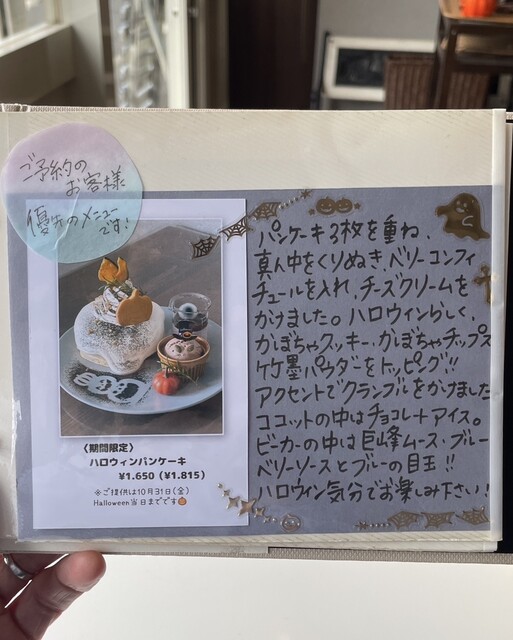 ご予約の
お客様
優先のメニュー
です!
〈期間限定〉
ハロウィンパンケーキ
¥1.650(¥1.815)
※ご提供は10月31日(金)
Halloween当日までです🎃
パンケーキ3枚を重ね、
真ん中をくりぬき、ベリーコンフィ
チュールを入れ、チーズクリームを
かけました。ハロウィンらしく、
かぼちゃクッキー、かぼちゃチップス
竹墨パウダーをトッピング!!
アクセントでクランブルをかけました
ココットの中はチョコレートアイス。
ビーカーの中は巨峰ムース・ブルー
ベリーソースとブルーの目玉!!
ハロウィン気分でお楽しみ下さい!